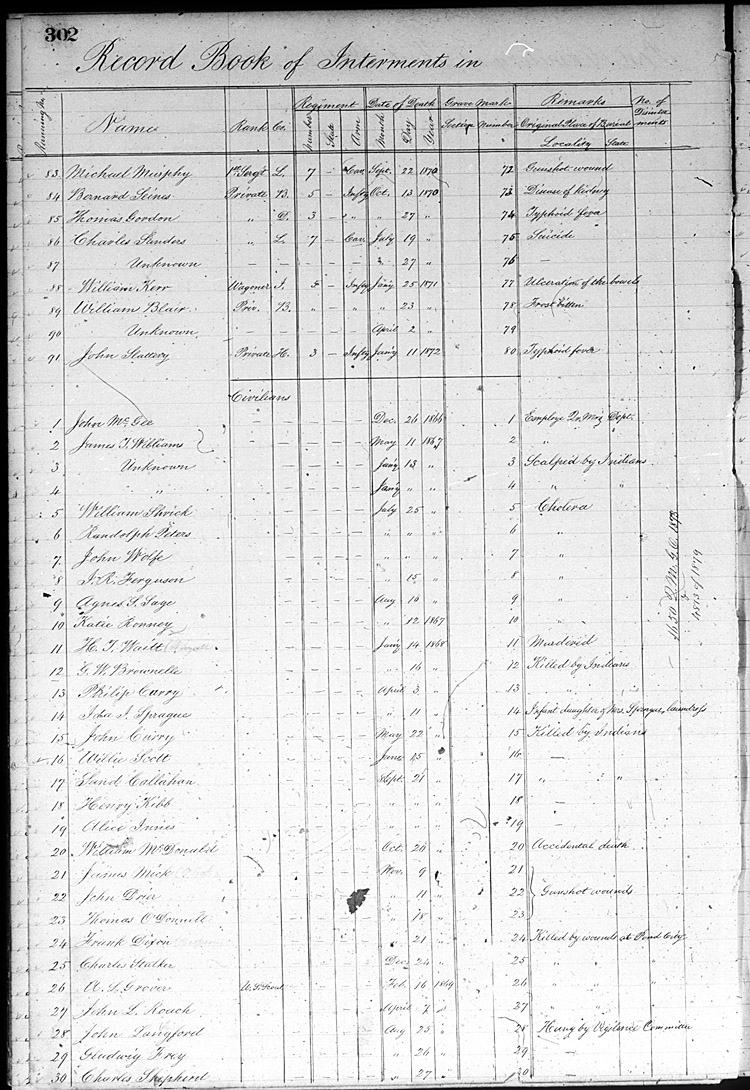 302
Record Book of Interments in
Running No. Name Rank Co. Regiment Number State Arm Date of Death Month Day Year Grave Mark Section Number Remarks Original Place of Burial Locality State No. of Disinterments
83 Michael Murphy 1st Sergt L. 7 – Cav Sept. 22 1870 72 Gunshot wound
84 Bernard Seines Private B. 5 – Infty Oct. 13 1870 73 Disease of Kidney
85 Thomas Gordon " D. 3 – " " 27 " 74 Typhoid feva
86 Charles Sanders " L. 7 – Cav. July 19 " 75 Suicide
87 Unknown – – – – – " 27 " 76 –
88 William Kerr Wagoner I. – Infty Jan'y 25 1871 77 Ulceration of the bowels
89 William Blair Priv. B. " – " " 23 " 78 Frost bitten
90 Unknown – – – – – April 2 " 79
91 John Slattery Private H. 3 – Infty Jan'y 11 1872 80 Typhoid feva
Civilians
1 John McGee – – – Dec. 26 1866 1 Employe Qr. Mrs. Dept.
2 James T. Williams – – – May 11 1867 2 "
3 Unknown – – – Jan'y 13 " 3 Scalped by Indians
4 " – – – Jan'y " " 4 " "
5 William Shrick – – – July 25 " 5 Cholera
6 Randolph Peters – – – " " " 6 "
7 John Wolfe – – – " " " 7 "
8 J. R. Ferguson – – – " 15 " 8 "
9 Agnes S. Sage – – – Aug 16 " 9 "
10 Katie Ronney – – – " 12 1867 10 "
11 H. T. Waitt – – – Jan'y 14 1868 11 Murdered
12 G. W. Brownelle – – – " 16 " 12 Killed by Indians
13 Philip Curry – – – April 3 " 13 " "
14 Ida I. Sprague – – – " 11 " 14 Infant daughter of Mrs. Sprague, laundress
15 John Curry – – – May 22 " 15 Killed by Indians
16 Willie Scott – – – June 15 " 16 –
17 Sand Callahan – – – Sept. 21 " 17 " "
18 Henry Kibb – – – " " " 18 –
19 Alice Innes – – – " " " 19
20 William McDonald – – – Oct. 20 " 20 Accidental death
21 James Mick – – – Nov. 9 " 21
22 John Drier – – – " 11 " 22 Gunshot wounds
23 Thomas O'Donnell – – – " 18 " 23
24 Frank Dixon – – – " 21 " 24 Killed by wounds at Pond City
25 Charles Stalker – – – Dec. 24 " 25 " " "
26 A. S. Grover U.S. Scout – – – Feb. 16 1869 26 " " "
27 John L. Roach – – – April 7 " 27 " "
28 John Langford – – – Aug 25 " 28 Hung by Vigilance Committee
29 Gludwig Frey – – – " 26 " 29 –
30 Charles Shepherd – – – " 27 " 30 –
Q. M. G. O. 1878
4813 of 1879